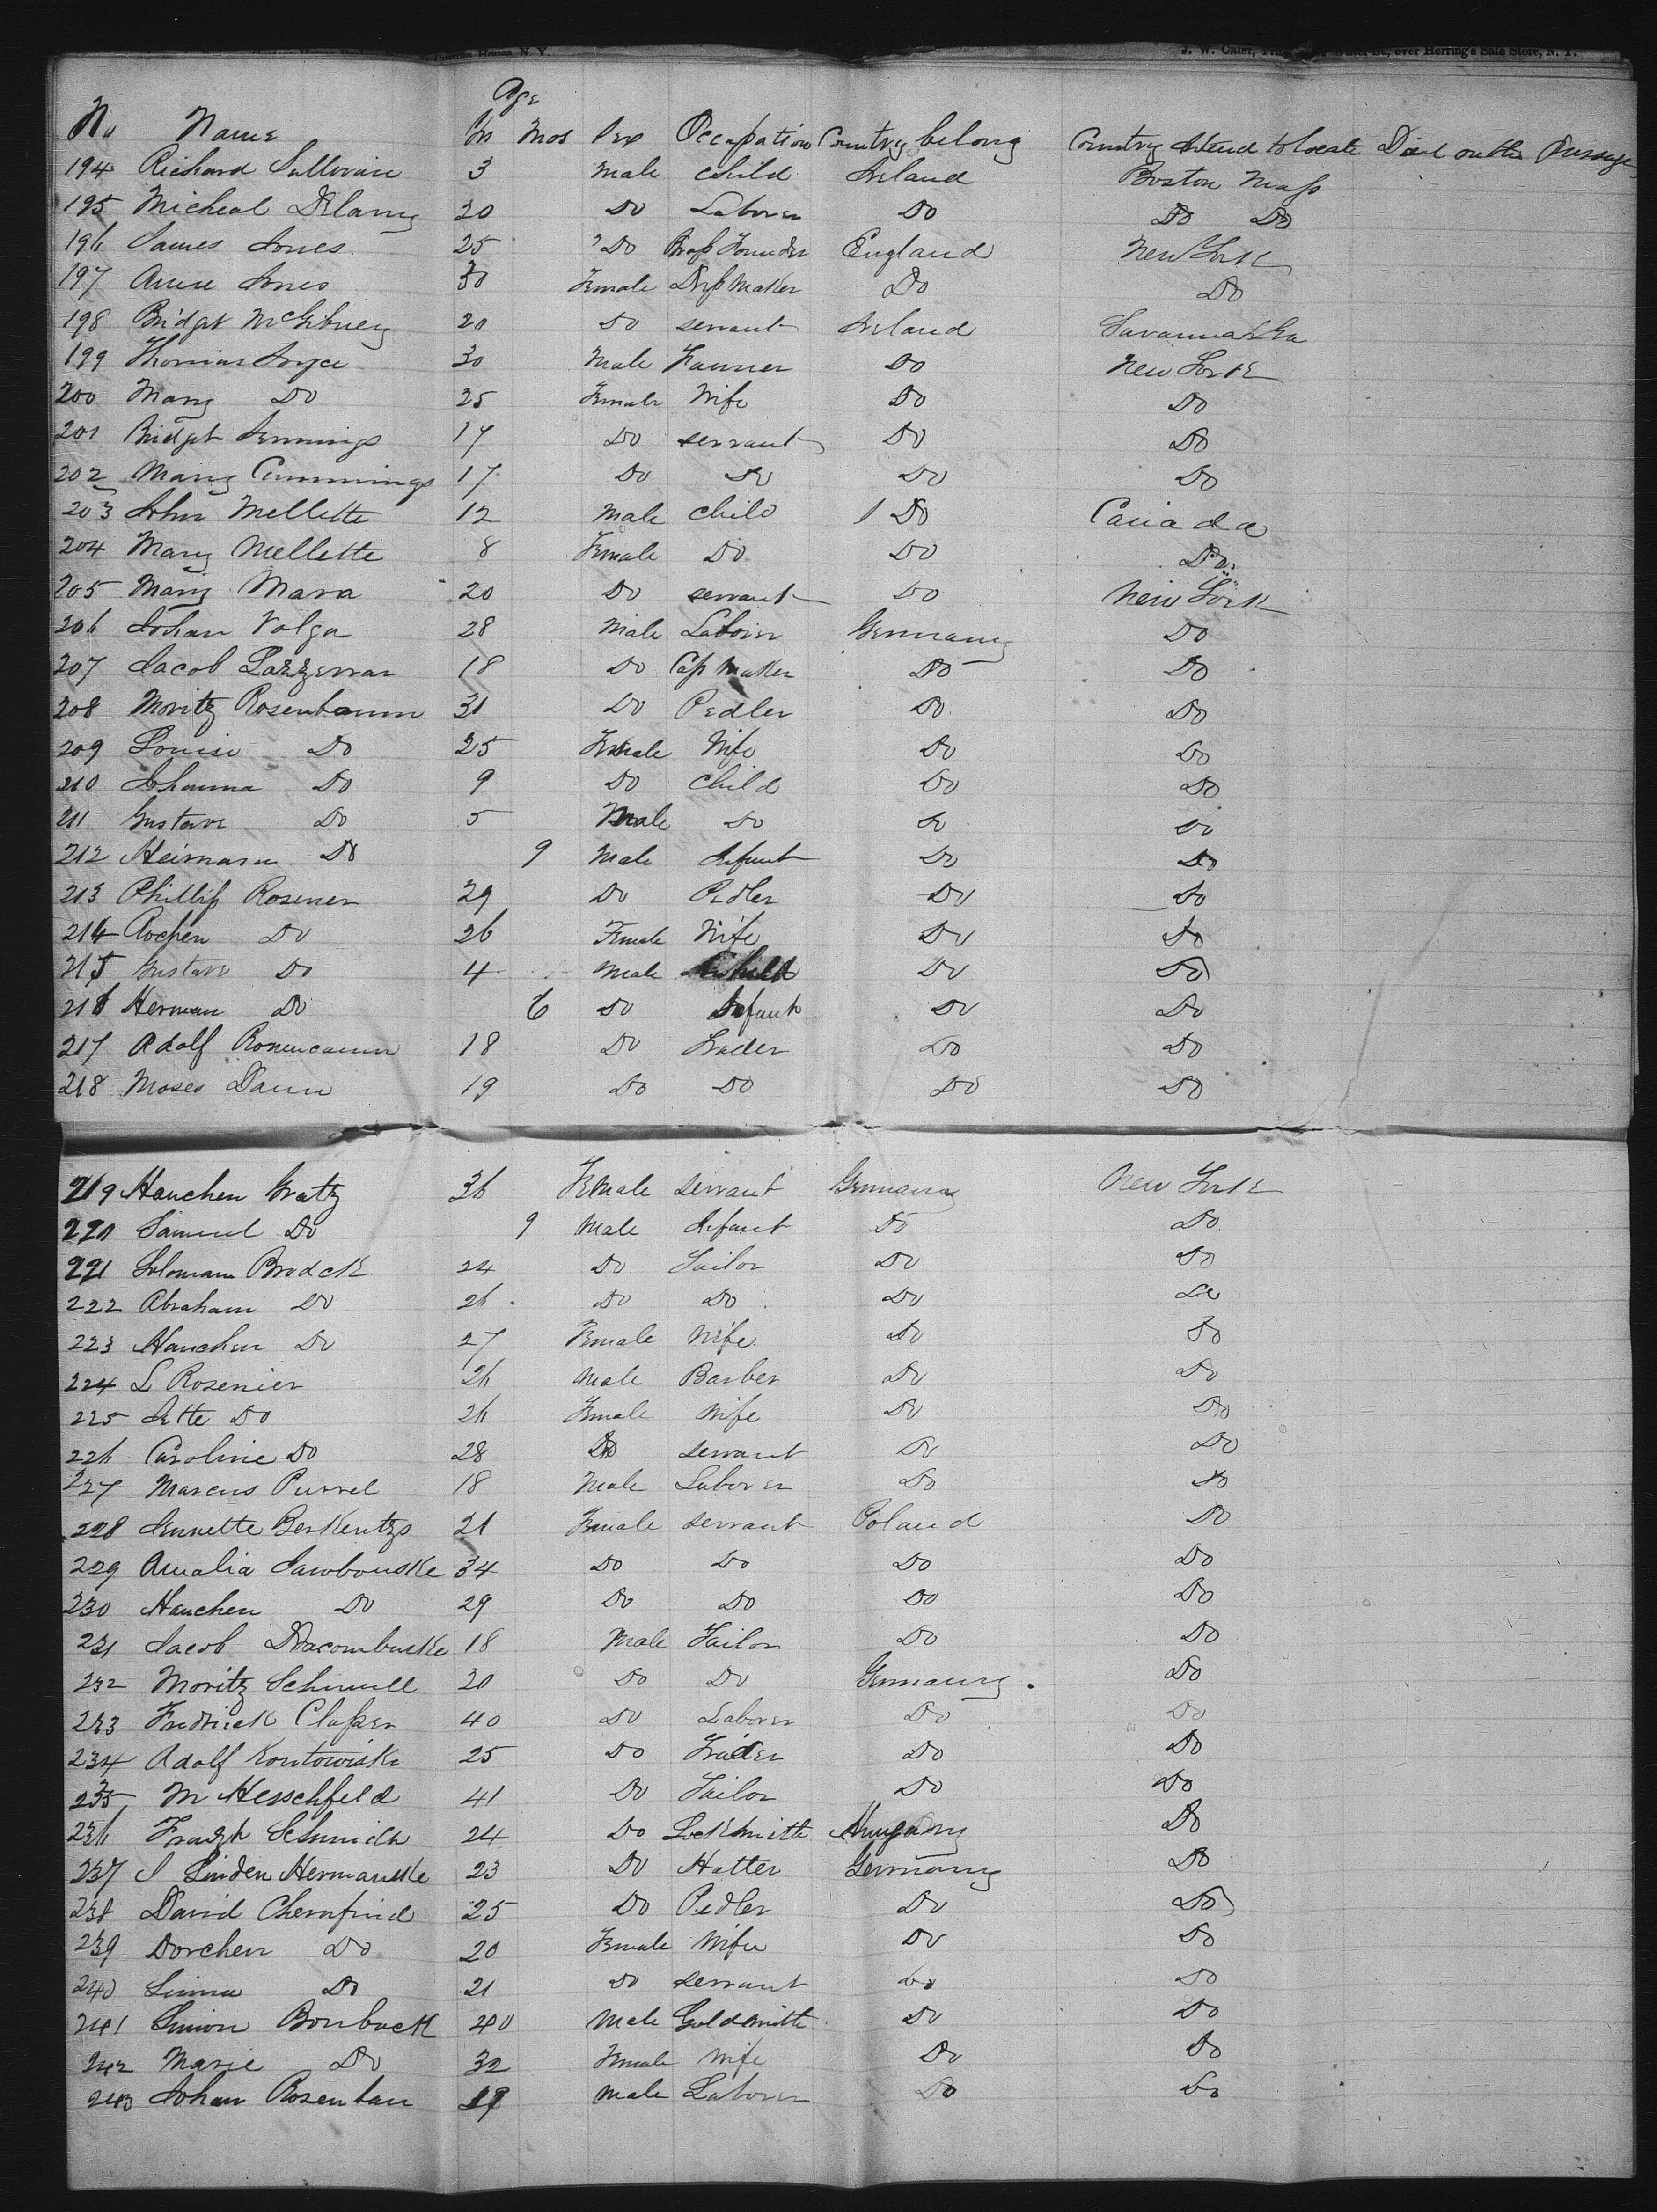 J. W. Crist, over Herring's Safe Store, N. Y.
House, N. Y.
Age
No Name Yrs Mos Sex Occupation Country belong Country Intend to locate Died on the Passage
194 Richard Sullivan 3 Male child Ireland Boston Mass
195 Micheal Delany 20 Do Laborer Do Do Do
196 James Jones 25 Do Brass Founder England New York
197 Anne Jones 30 Female Dress Maker Do Do
198 Bridget McGibney 20 Do servant Ireland Savannah Ga
199 Thomas Joyce 30 Male Farmer Do New York
200 Mary Do 25 Female Wife Do Do
201 Bridget Jennings 17 Do servant Do Do
202 Mary Cummings 17 Do Do Do Do
203 John Mellette 12 Male child 1 Do Canada
204 Mary Mellette 8 Female Do Do Do
205 Mary Mara 20 Do servant Do New York
206 Johan Volga 28 Male Laborer Germany Do
207 Jacob 18 Do Cap Maker Do Do
208 Moritz Rosenbaum 31 Do Pedler Do Do
209 Louise Do 25 Female Wife Do Do
210 Johanna Do 9 Do Child Do Do
211 Gustave Do 5 Male Do Do Do
212 Heimann Do 9 Male Infant Do Do
213 Phillip Rosener 29 Do Pedler Do Do
214 Do 26 Female Wife Do Do
215 Gustave Do 4 Male Child Do Do
216 Herman Do 6 Do Infant Do Do
217 Adolf 18 Do Trader Do Do
218 Moses Dann 19 Do Do Do Do
219 Hanchen Gratz 36 Female servant Germany New York
220 Samuel Do 9 Male Infant Do Do
221 Solomann Brodck 24 Do Tailor Do Do
222 Abraham Do 26 Do Do Do Do
223 Hanchen Do 27 Female Wife Do Do
224 L Rosenier 26 Male Barber Do Do
225 Jette Do 26 Female Wife Do Do
226 Caroline Do 28 Do servant Do Do
227 Marcus Purrel 18 Male Laborer Do Do
228 Jennette Berkentzs 21 Female servant Poland Do
229 Amalia Jawbouske 34 Do Do Do Do
230 Hanchen Do 29 Do Do Do Do
231 Jacob 18 Male Tailor Do Do
232 Moritz Schmull 20 Do Do Germany Do
233 Fredrick Classer 40 Do Laborer Do Do
234 Adolf Kontowiske 25 Do Trader Do Do
235 M Herschfeld 41 Do Tailor Do Do
236 Schmidt 24 Do Locksmith Hungary Do
237 S Linden Hermanske 23 Do Hatter Germany Do
238 David Chernfind 25 Do Pedler Do Do
239 Dorchen Do 20 Female Wife Do Do
240 Do 21 Do servant Do Do
241 Simon Bornback 40 Male Goldsmith Do Do
242 Marie Do 32 Female Wife Do Do
243 Johan Rosentan 19 Male Laborer Do Do